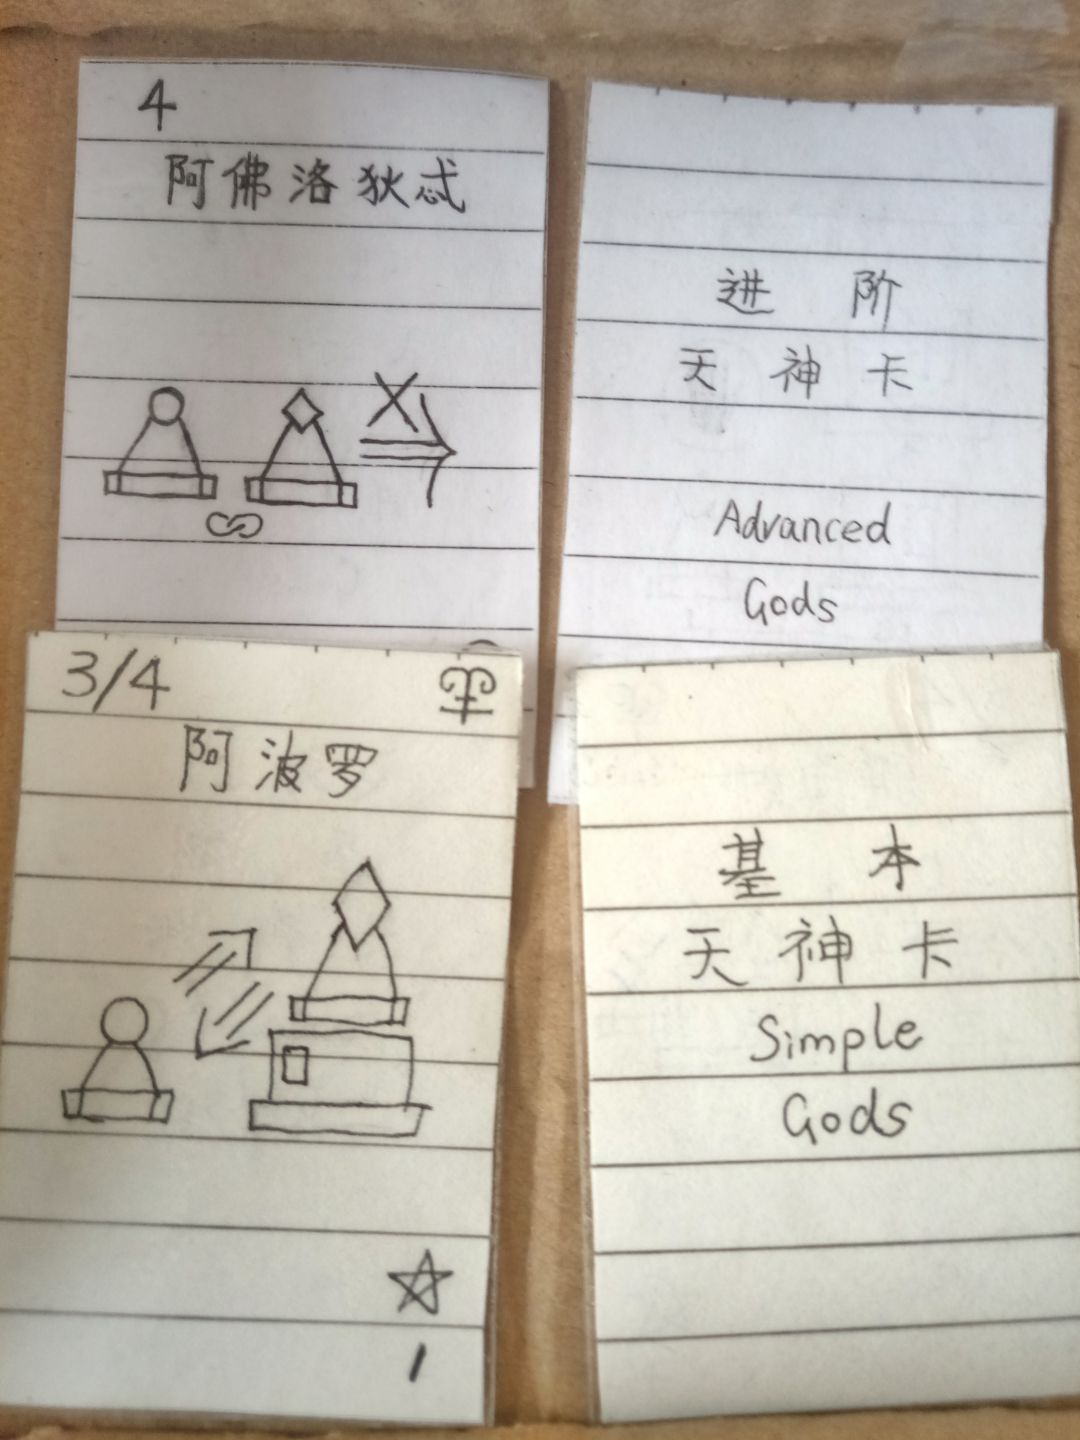 4
阿佛洛狄忒
进阶
天神卡
Advanced
Gods
3/4
阿波罗
1
基本
天神卡
Simple
Gods